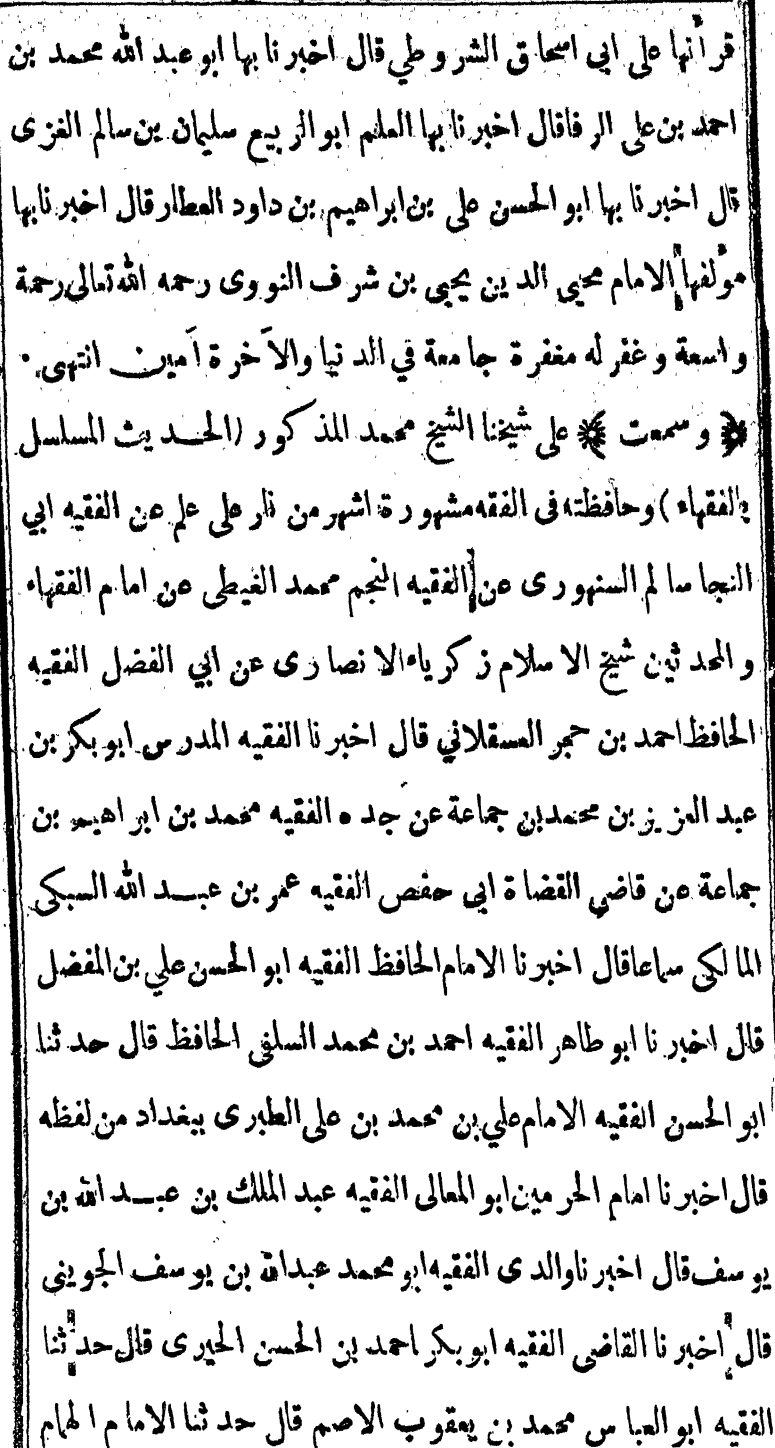 قرأتها على ابي اسحاق الشروطي قال اخبرنا بها ابو عبد الله محمد بن
احمد بن على الرفاقال اخبرنا بها العلم ابو الربيع سليمان بن سالم الغزى
قال اخبرنا بها ابو الحسن على بن ابراهيم بن داود العطار قال اخبرنا بها
مؤلفها الامام محيي الدين يحيى بن شرف النووى رحمه الله تعالى رحمة
واسعة وغفر له مغفرة جامعة في الدنيا والآخرة آمين انتهى ·
﴿ وسمعت ﴾ على شيخنا الشيخ محمد المذكور (الحديث المسلسل
بالفقهاء) وحافظته فى الفقه مشهورة اشهر من نار على علم عن الفقيه ابي
النجا سالم السنهورى عن الفقيه النجم محمد الغيطى عن امام الفقهاء
والمحدثين شيخ الاسلام زكرياء الانصارى عن ابي الفضل الفقيه
الحافظ احمد بن حجر العسقلاني قال اخبرنا الفقيه المدرس ابو بكر بن
عبد العزيز بن محمد بن جماعة عن جده الفقيه محمد بن ابراهيم بن
جماعة عن قاضي القضاة ابي حفص الفقيه عمر بن عبد الله السبكى
المالكى سماعا قال اخبرنا الامام الحافظ الفقيه ابو الحسن علي بن المفضل
قال اخبرنا ابو طاهر الفقيه احمد بن محمد السلفى الحافظ قال حدثنا
ابو الحسن الفقيه الامام علي بن محمد بن على الطبرى ببغداد من لفظه
قال اخبرنا امام الحرمين ابو المعالى الفقيه عبد الملك بن عبد الله بن
يوسف قال اخبرنا والدى الفقيه ابو محمد عبد الله بن يوسف الجوينى
قال اخبرنا القاضى الفقيه ابو بكر احمد بن الحسن الحيرى قال حدثنا
الفقيه ابو العباس محمد بن يعقوب الاصم قال حدثنا الامام الهمام